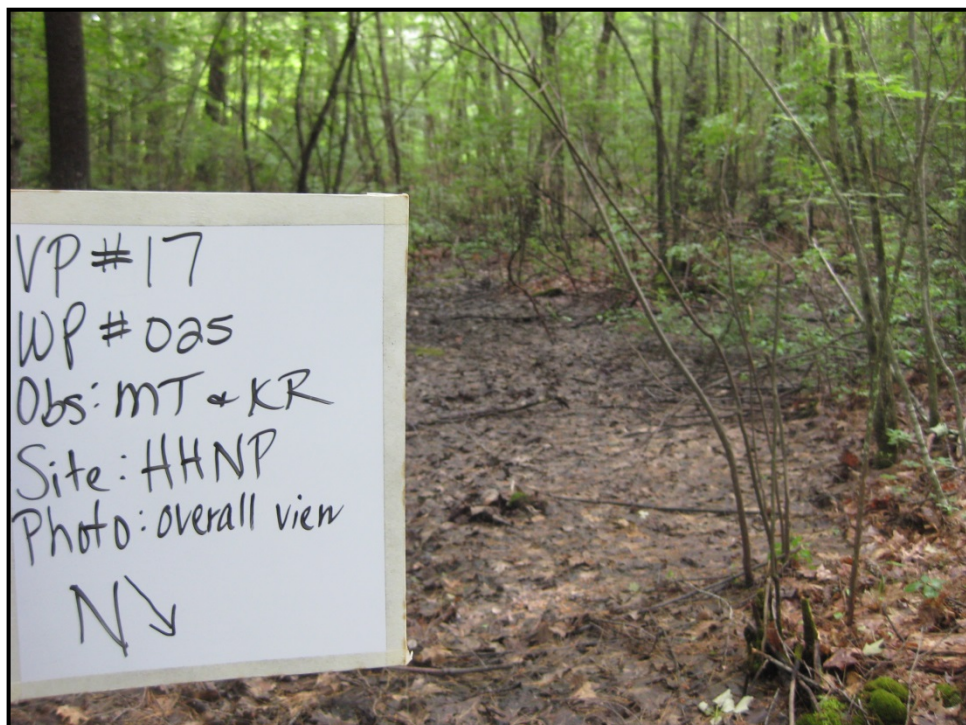 VP #17
WP #025
Obs: MT & KR
Site: HHNP
Photo: overall view
N↘